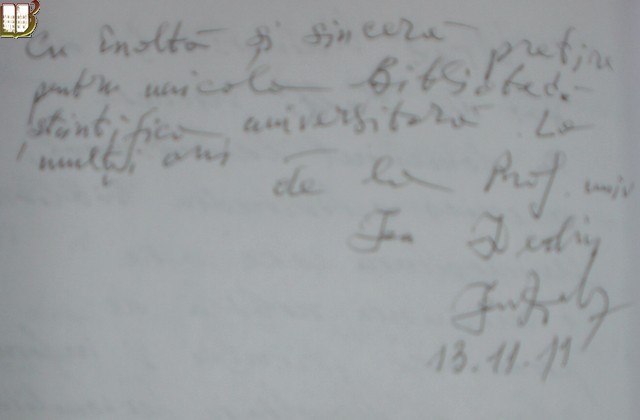 Cu înaltă și sinceră prețuire
pentru unicola Bibliotecă
științifică universitară. La
mulți ani
de la Prof. univ
Ion
13.11.11